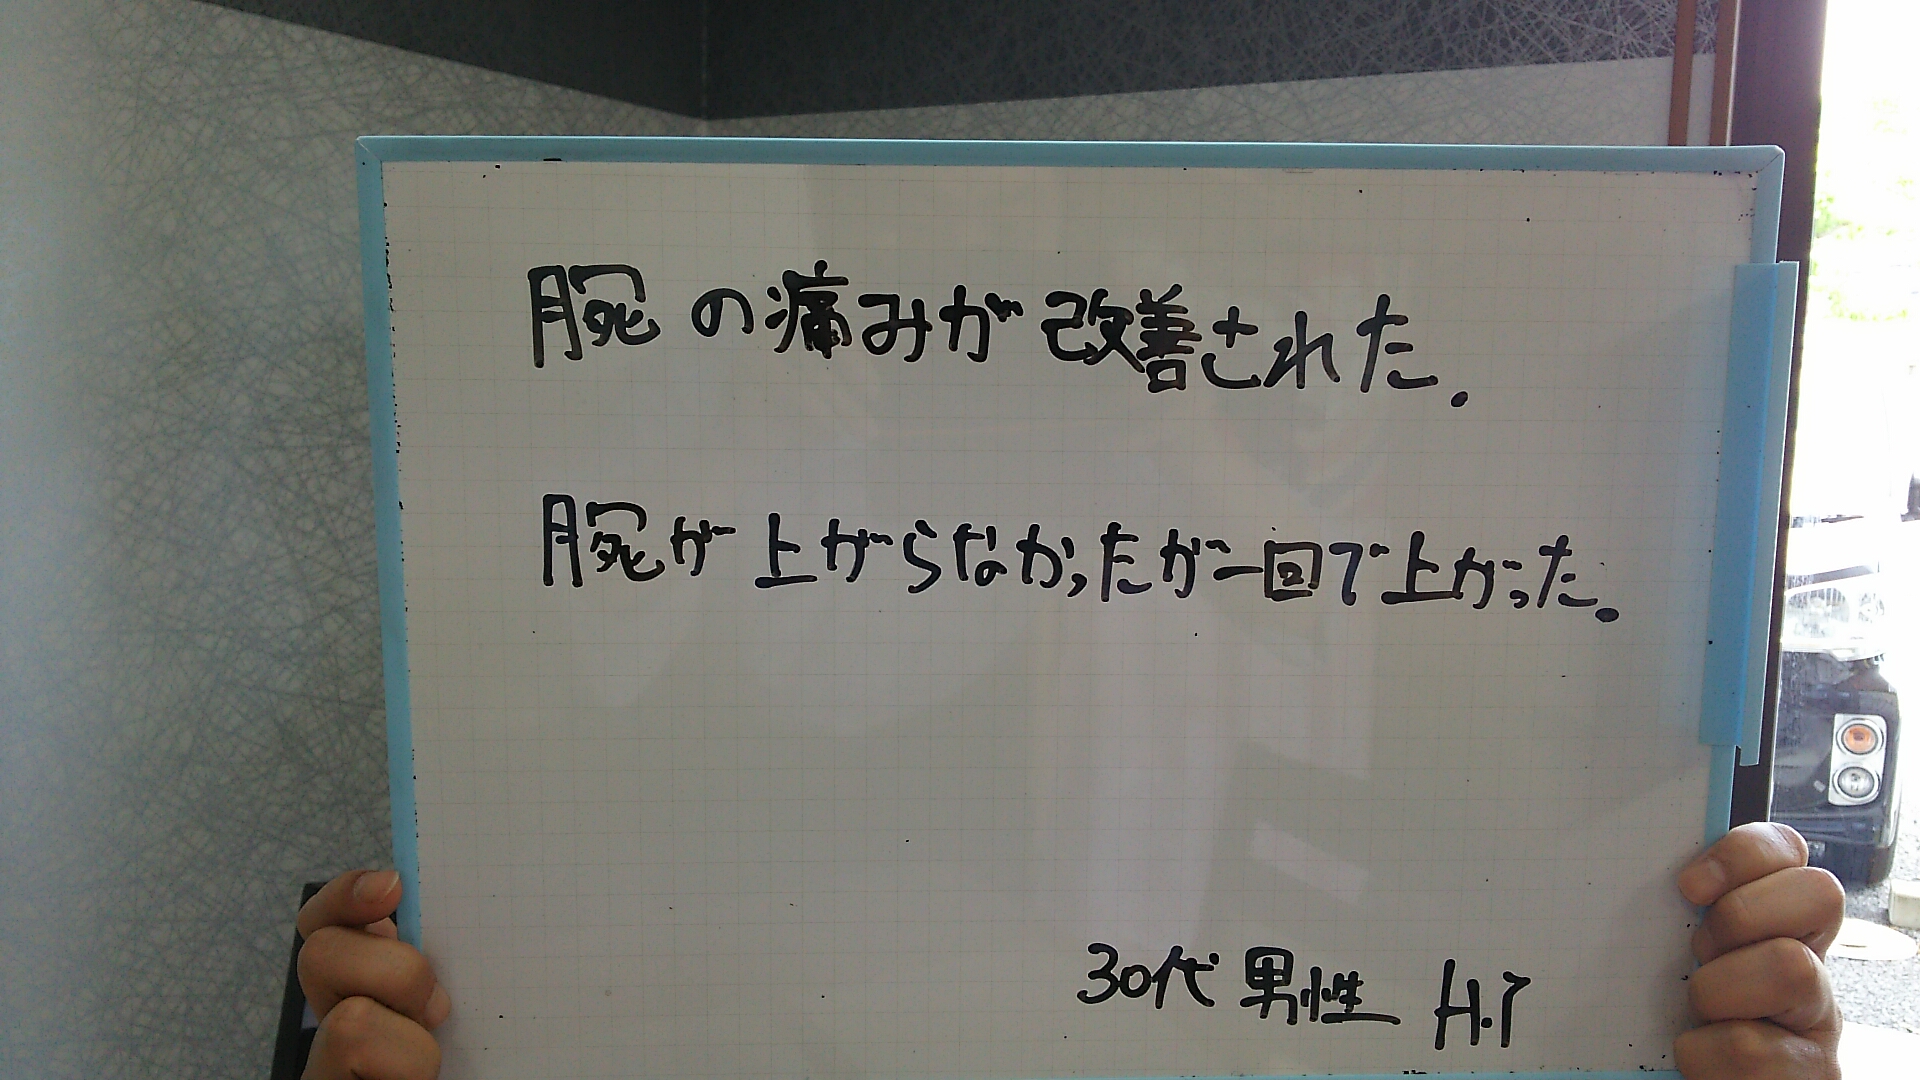 腕の痛みが改善された.
腕が上がらなかったが一回で上がった.
30代 男性 H.T